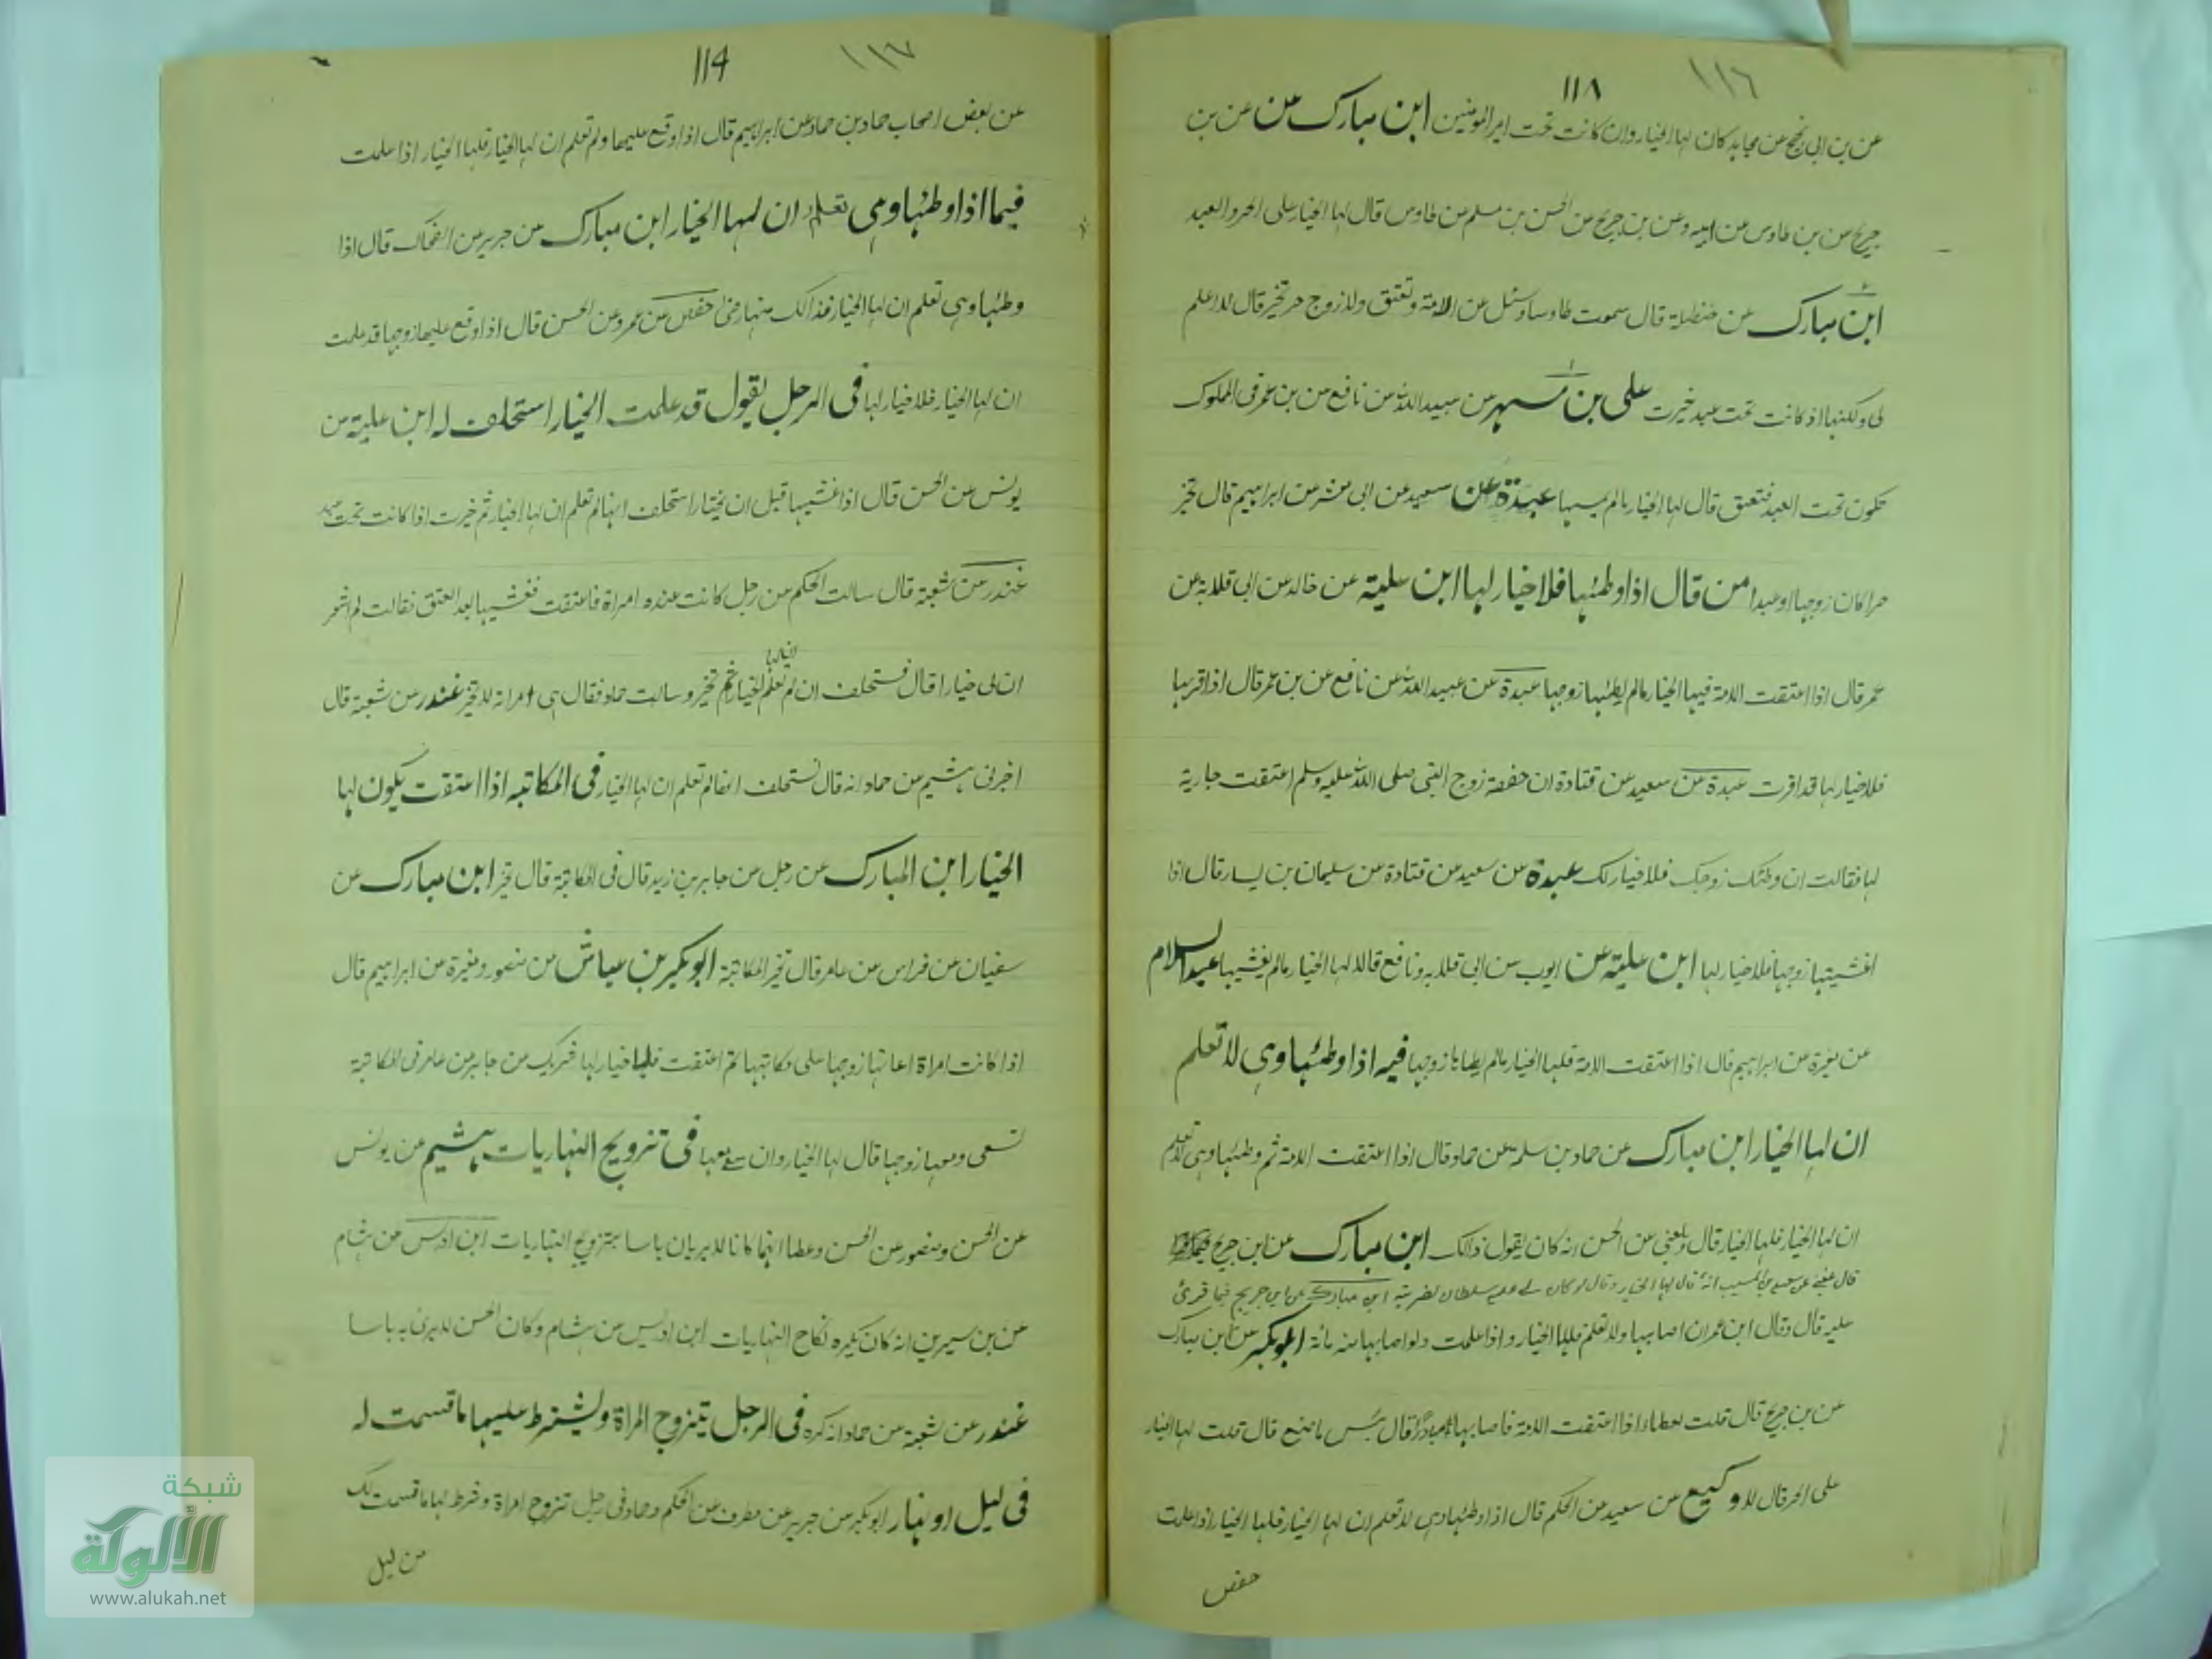 ١١٦
١١٨
عن بن ابى نجيح عن مجاهد كان لها الخيار وان كانت تحت امير المومنين ابن مبارك عن عن بن
جريح عن بن طاوس عن ابيه وعن بن جريح عن الحسن بن مسلم عن طاوس قال لها الخيار على الحر والعبد
ابن مبارك عن حنظلة قال سمعت طاوسا وسئل عن الامة وتعتق ولها زوج حر تخير قال لا اعلم
لى ولكنها اذ كانت تحت عبد خيرت على بن مسهر عن عبيد الله عن نافع عن بن عمر فى المملوك
تكون تحت العبد فتعتق قال لها الخيار مالم يمسها عبدة عن سعيد عن ابى معشر عن ابراهيم قال تخير
حرا كان زوجها او عبدا من قال اذا وطئها فلا خيار لها ابن علية عن خالد عن ابى قلابة عن
عمر قال اذا اعتقت الامة فيها الخيار مالم يطئها زوجها عبدة عن عبيد الله عن نافع عن بن عمر قال اذا قربها
فلا خيار لها قد اقرت عبدة عن سعيد عن قتادة ان حفصة زوج النبى صلى الله عليه وسلم اعتقت جارية
لها فقالت ان وطئك زوجك فلا خيار لك عبدة عن سعيد عن قتادة عن سليمان بن يسار قال اذا
اغشيتها زوجها فلا خيار لها ابن علية عن ايوب عن ابى قلابه ونافع قالا لها الخيار مالم يغشيها عبد السلام
عن مغيرة عن ابراهيم قال اذا اعتقت الامة فلها الخيار مالم يطاها زوجها فيه اذا وطئها وهى لا تعلم
ان لها الخيار ابن مبارك عن حماد بن سلمة عن حماد قال اذا اعتقت الامة ثم وطئها وهى لا تعلم
ان لها الخيار فلها الخيار قال وبلغنى عن الحسن انه كان يقول ذالك ابن مبارك عن ابن جريح
عن سعيد بن المسيب انه قال لها الخيار وقال لو كان لى عليه سلطان لضربته ابن مبارك عن ابن جريح فيما قرئ
عليه قال وقال ابن عمر ان اصابها ولا تعلم فلها الخيار واذا علمت ولو اصابها مائة ابو بكر عن ابن مبارك
عن بن جريح قال قلت لعطاء اذا اعتقت الامة فاصابها مبادرا قال بئس ما صنع قال قلت لها الخيار
على الحر قال لا وكيع عن سعيد عن الحكم قال اذا وطئها وهى لا تعلم ان لها الخيار فلها الخيار اذا علمت
حفص
١١٧
114
عن بعض اصحاب حماد بن حماد عن ابراهيم قال اذا وقع عليها ولم تعلم ان لها الخيار فلها الخيار اذا علمت
فيما اذا وطئها وهى تعلم ان لها الخيار ابن مبارك عن جرير عن الضحاك قال اذا
وطئها وهى تعلم ان لها الخيار فذالك منها رضى حفص عن عمرو عن الحسن قال اذا وقع عليها زوجها قد علمت
ان لها الخيار فلا خيار لها فى الرجل يقول قد علمت الخيار استحلف له ابن علية عن
يونس عن الحسن قال اذا غشيها قبل ان يختار استحلف انها لم تعلم ان لها الخيار ثم خيرت اذا كانت تحت عبد
غندر عن شعبة قال سالت الحكم عن رجل كانت عنده امراة فاعتقت فغشيها بعد العتق فقالت لم اشعر
ان لى خيارا قال فستحلف ان لم تعلم الخيار ثم تخير وسالت حماد فقال هى امراته لا تخير غندر عن شعبة قال
اخبرنى هشيم عن حماد انه قال تستحلف انها لم تعلم ان لها الخيار فى المكاتبه اذا اعتقت يكون لها
الخيار ابن المبارك عن رجل عن جابر بن زيد قال فى المكاتبة قال تخير ابن مبارك عن
سفيان عن فراس عن عامر قال تخير المكاتبة ابو بكر بن عياش عن منصور ومغيرة عن ابراهيم قال
اذا كانت امراة اعانها زوجها على مكاتبتها ثم اعتقت فلا خيار لها شريك عن جابر عن عامر فى المكاتبة
تسعى ومعها زوجها قال لها الخيار وان سعى معها فى تزويج النهاريات هشيم عن يونس
عن الحسن ومنصور عن الحسن وعطا انهما كانا لا يريان باسا بتزويج النهاريات ابن ادريس عن هشام
عن بن سيرين انه كان يكره نكاح النهاريات ابن ادريس عن هشام وكان الحسن لا يرى به باسا
غندر عن شعبة عن حماد انه كره فى الرجل يتزوج المراة ويشترط عليها ما قسمت له
فى ليل او نهار ابو بكر عن جرير عن مطرف عن الحكم وحماد فى رجل تزوج امراة وشرط لها ما قسمت لك
من ليل
شبكة
الألوكة
www.alukah.net